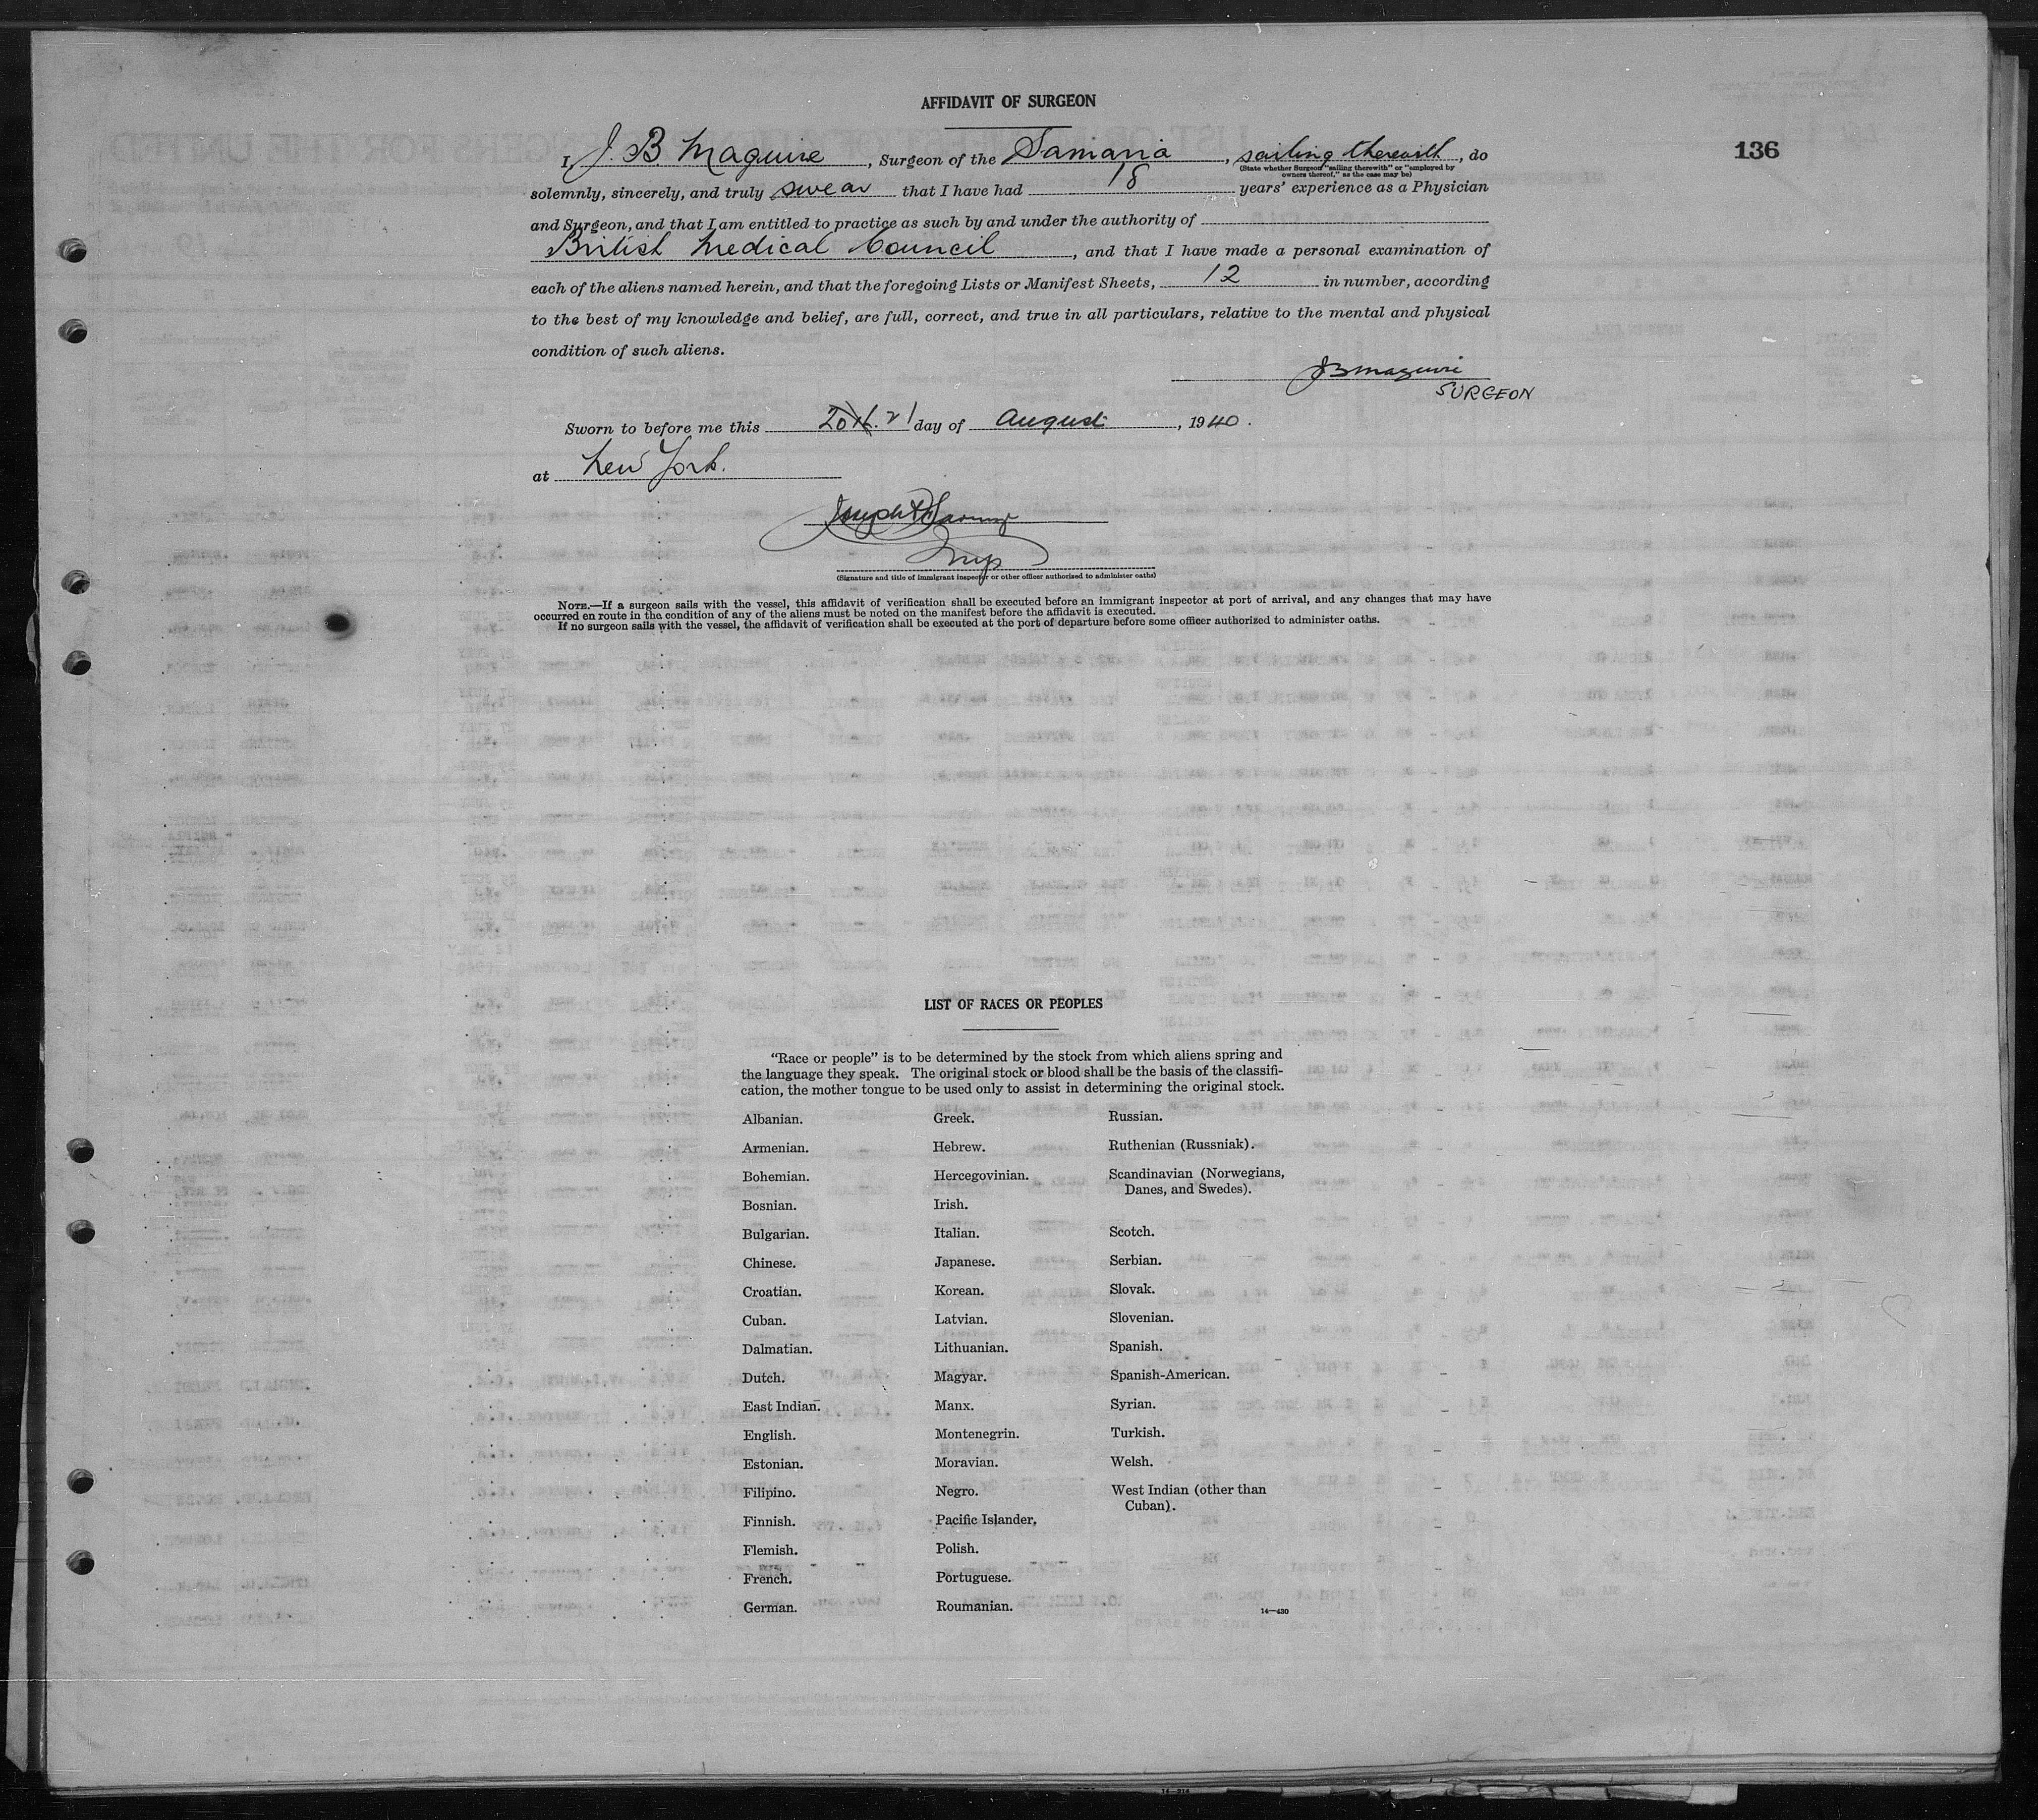 AFFIDAVIT OF SURGEON
136
I, J. B Maguire, Surgeon of the Samaria, sailing therewith, do
(State whether Surgeon "sailing therewith" or "employed by
owners thereof," as the case may be)
solemnly, sincerely, and truly swear that I have had 18 years' experience as a Physician
and Surgeon, and that I am entitled to practice as such by and under the authority of
British Medical Council, and that I have made a personal examination of
each of the aliens named herein, and that the foregoing Lists or Manifest Sheets, 12 in number, according
to the best of my knowledge and belief, are full, correct, and true in all particulars, relative to the mental and physical
condition of such aliens.
JB Maguire
SURGEON
Sworn to before me this 20th. 21 day of August, 1940.
at New York.
Joseph
Insp
(Signature and title of immigrant inspector or other officer authorized to administer oaths)
NOTE.—If a surgeon sails with the vessel, this affidavit of verification shall be executed before an immigrant inspector at port of arrival, and any changes that may have
occurred en route in the condition of any of the aliens must be noted on the manifest before the affidavit is executed.
If no surgeon sails with the vessel, the affidavit of verification shall be executed at the port of departure before some officer authorized to administer oaths.
LIST OF RACES OR PEOPLES
"Race or people" is to be determined by the stock from which aliens spring and
the language they speak. The original stock or blood shall be the basis of the classifi-
cation, the mother tongue to be used only to assist in determining the original stock.
Albanian.
Armenian.
Bohemian.
Bosnian.
Bulgarian.
Chinese.
Croatian.
Cuban.
Dalmatian.
Dutch.
East Indian.
English.
Estonian.
Filipino.
Finnish.
Flemish.
French.
German.
Greek.
Hebrew.
Hercegovinian.
Irish.
Italian.
Japanese.
Korean.
Latvian.
Lithuanian.
Magyar.
Manx.
Montenegrin.
Moravian.
Negro.
Pacific Islander.
Polish.
Portuguese.
Roumanian.
Russian.
Ruthenian (Russniak).
Scandinavian (Norwegians,
Danes, and Swedes).
Scotch.
Serbian.
Slovak.
Slovenian.
Spanish.
Spanish-American.
Syrian.
Turkish.
Welsh.
West Indian (other than
Cuban).
14—430